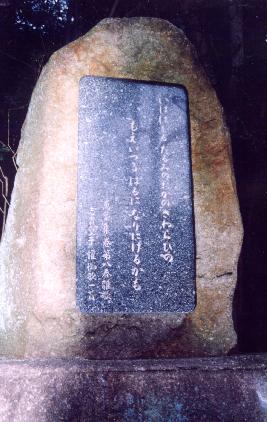 いはばしるたるみのうへのさわらびの
もえいづるはるになりにけるかも
萬葉集巻第八春雜歌
志貴皇子懽御歌一首